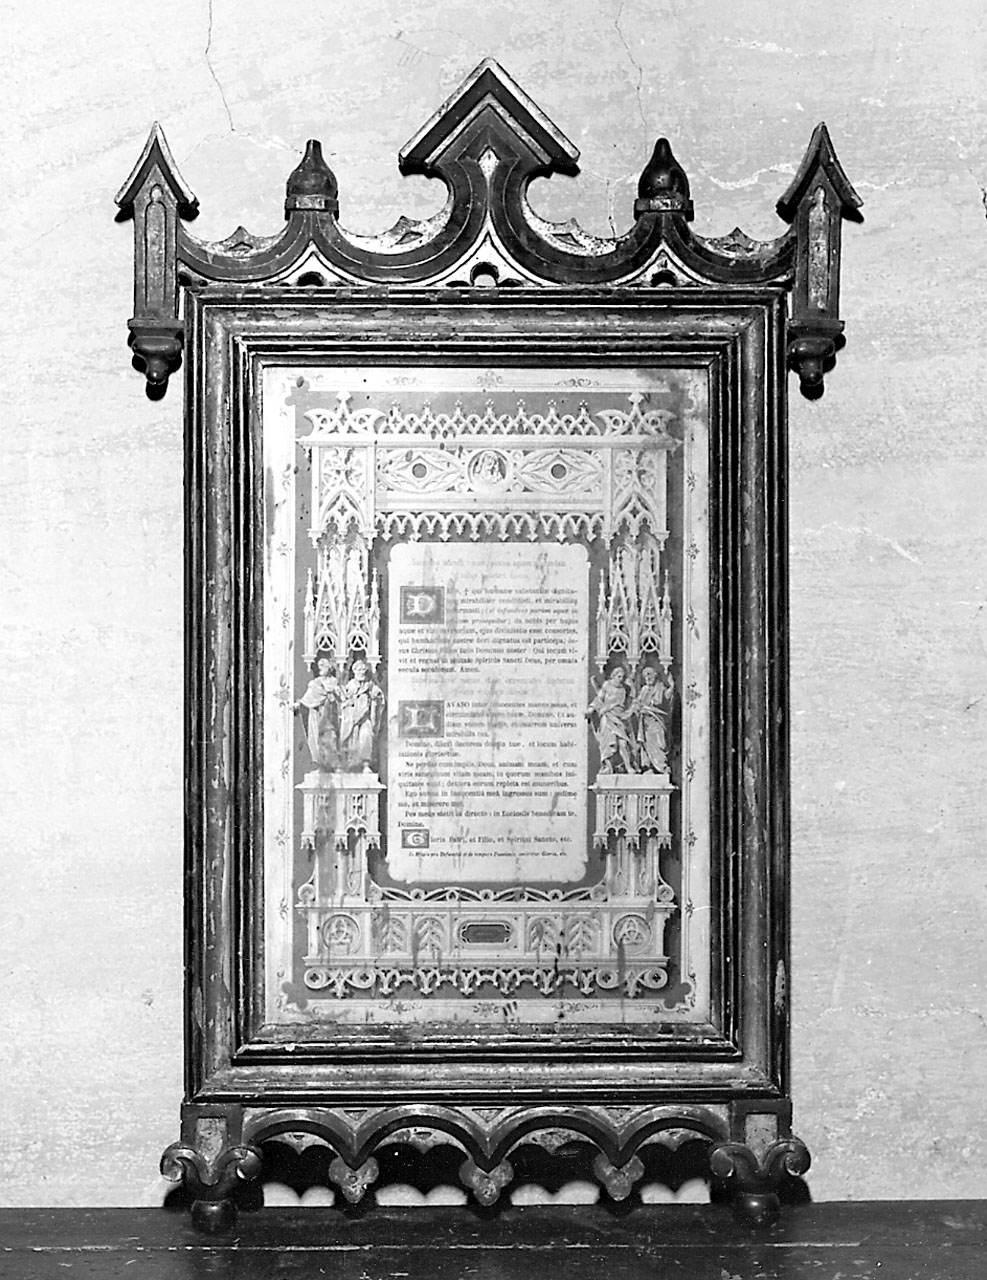 D , † qui humanæ substantiæ dignita-
mirabiliter condidisti, et mirabilius
reformasti: (et infundens parum aquæ in
prosequitur): da nobis per hujus
aquæ et vini mysterium, ejus divinitatis esse consortes,
qui humanitatis nostræ fieri dignatus est particeps, Je-
sus Christus Filius tuus Dominus noster: Qui tecum vi-
vit et regnat in unitate Spiritus Sancti Deus, per omnia
sæcula sæculorum. Amen.
LAVABO inter innocentes manus meas, et
circumdabo altare tuum, Domine. Ut au-
diam vocem laudis, et enarrem universa
mirabilia tua.
Domine, dilexi decorem domus tuæ, et locum habi-
tationis gloriæ tuæ.
Ne perdas cum impiis, Deus, animam meam, et cum
viris sanguinum vitam meam, in quorum manibus ini-
quitates sunt; dextera eorum repleta est muneribus.
Ego autem in innocentia meâ ingressus sum: redime
me, et miserere mei.
Pes meus stetit in directo: in Ecclesiis benedicam te,
Domine.
Gloria Patri, et Filio, et Spiritui Sancto, etc.
In Missis pro Defunctis et de tempore Passionis, omittitur Gloria, etc.